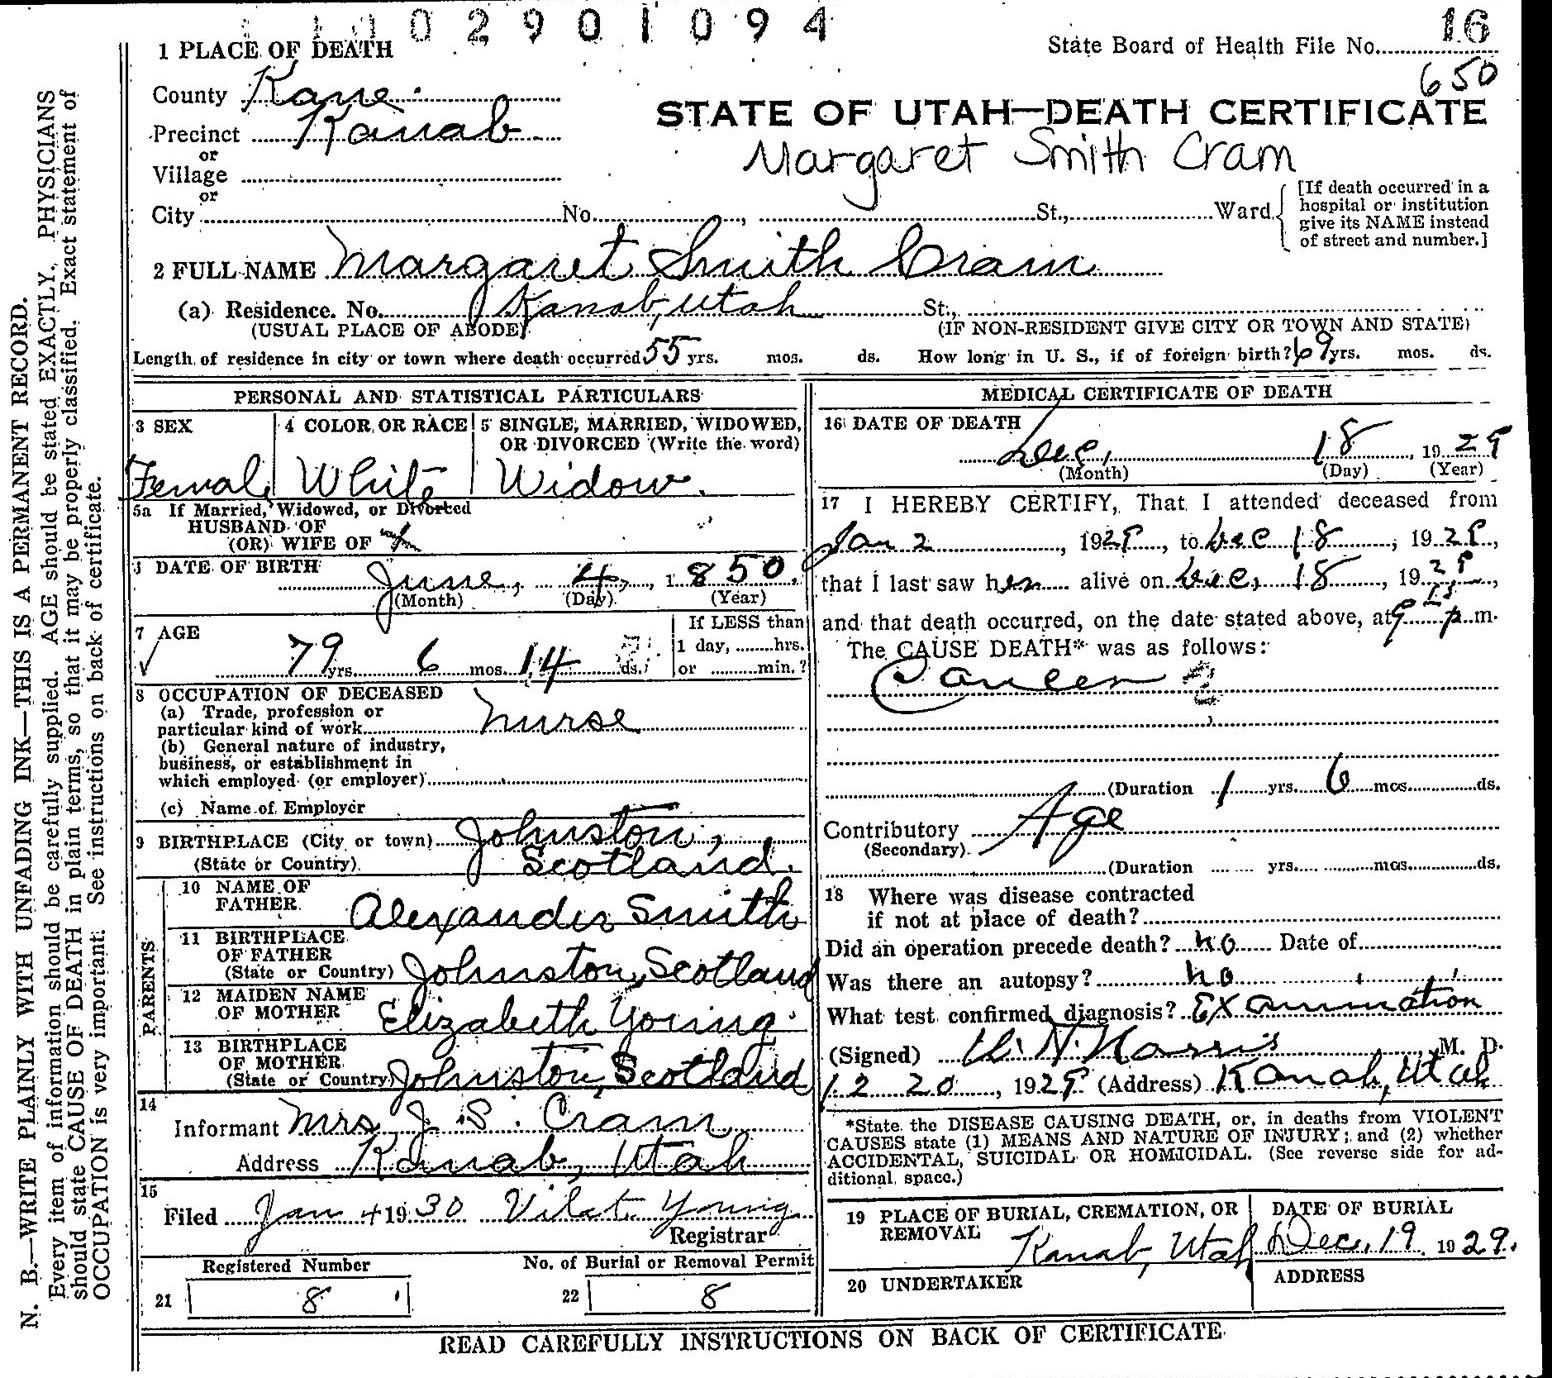 1 1 0 0 2 9 0 1 0 9 4
16
1 PLACE OF DEATH
State Board of Health File No.
650
County Kane
STATE OF UTAH—DEATH CERTIFICATE
Precinct Kanab
or
Margaret Smith Cram
Village
or
City No. , St., Ward
[If death occurred in a
hospital or institution
give its NAME instead
of street and number.]
2 FULL NAME Margaret Smith Cram
(a) Residence. No. Kanab, Utah St.,
(USUAL PLACE OF ABODE) (IF NON-RESIDENT GIVE CITY OR TOWN AND STATE)
Length of residence in city or town where death occurred 55 yrs. mos. ds. How long in U. S., if of foreign birth? 69 yrs. mos. ds.
PERSONAL AND STATISTICAL PARTICULARS
3 SEX
Female
4 COLOR OR RACE
White
5 SINGLE, MARRIED, WIDOWED,
OR DIVORCED (Write the word)
Widow.
5a If Married, Widowed, or Divorced
HUSBAND OF
(OR) WIFE OF
DATE OF BIRTH
June, 4, 1850.
(Month) (Day) (Year)
7 AGE
79 yrs. 6 mos. 14 ds.
If LESS than
1 day, ........hrs.
or ........min.?
8 OCCUPATION OF DECEASED
(a) Trade, profession or
particular kind of work Nurse
(b) General nature of industry,
business, or establishment in
which employed (or employer)
(c) Name of Employer
9 BIRTHPLACE (City or town) Johnston,
(State or Country) Scotland.
PARENTS
10 NAME OF
FATHER Alexander Smith
11 BIRTHPLACE
OF FATHER
(State or Country) Johnston, Scotland
12 MAIDEN NAME
OF MOTHER Elizabeth Young
13 BIRTHPLACE
OF MOTHER
(State or Country) Johnston, Scotland
14
Informant Mrs J. S. Cram
Address Kanab, Utah
15
Filed Jan 4 1930 Vilat Young
Registrar
Registered Number No. of Burial or Removal Permit
21 8 22 8
MEDICAL CERTIFICATE OF DEATH
16 DATE OF DEATH
Dec, 18, 1929
(Month) (Day) (Year)
17 I HEREBY CERTIFY, That I attended deceased from
Jan 2, 1929, to Dec 18, 1929,
that I last saw her alive on Dec, 18, 1929,
and that death occurred, on the date stated above, at 9 15 p.m.
The CAUSE DEATH* was as follows:
Cancer
(Duration 1 yrs. 6 mos. ds.
Contributory Age
(Secondary)
(Duration yrs. mos. ds.
18 Where was disease contracted
if not at place of death?
Did an operation precede death? no Date of
Was there an autopsy? no
What test confirmed diagnosis? Examination
(Signed) Norris M. D.
12 20, 1929 (Address) Kanab, Utah
*State the DISEASE CAUSING DEATH, or, in deaths from VIOLENT
CAUSES state (1) MEANS AND NATURE OF INJURY; and (2) whether
ACCIDENTAL, SUICIDAL OR HOMICIDAL. (See reverse side for ad-
ditional space.)
19 PLACE OF BURIAL, CREMATION, OR
REMOVAL Kanab, Utah
DATE OF BURIAL
Dec. 19 1929.
20 UNDERTAKER
ADDRESS
READ CAREFULLY INSTRUCTIONS ON BACK OF CERTIFICATE
N. B.—WRITE PLAINLY WITH UNFADING INK—THIS IS A PERMANENT RECORD.
Every item of information should be carefully supplied. AGE should be stated EXACTLY. PHYSICIANS
should state CAUSE OF DEATH in plain terms, so that it may be properly classified. Exact statement of
OCCUPATION is very important. See instructions on back of certificate.